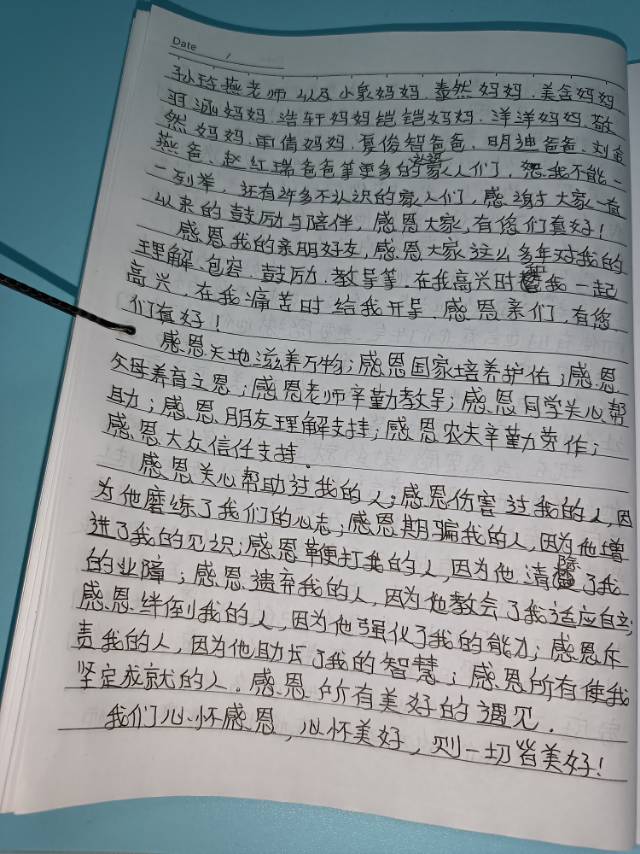 Date /
孙琦燕老师以及小泉妈妈、泰然妈妈、美含妈妈
羽涵妈妈、浩轩妈妈铠铠妈妈、洋洋妈妈、敬
然妈妈、雨倩妈妈、夏俊智爸爸、明迪爸爸、刘金
燕爸、赵红瑞爸爸等更多的家人们，恕我不能一
一列举，还有许多不认识的家人们，感谢大家一直
以来的鼓励与陪伴，感恩大家，有您们真好！
感恩我的亲朋好友，感恩大家这么多年对我的
理解、包容、鼓励、教导等，在我高兴时和我一起
高兴，在我痛苦时给我开导，感恩亲们，有您
们真好！
感恩天地滋养万物；感恩国家培养护佑；感恩
父母养育之恩；感恩老师辛勤教导；感恩同学关心帮
助；感恩朋友理解支持；感恩农夫辛勤劳作；
感恩大众信任支持。
感恩关心帮助过我的人；感恩伤害过我的人，因
为他磨练了我们的心志；感恩期骗我的人，因为他增
进了我的见识；感恩鞭打我的人，因为他清除了我
的业障；感恩遗弃我的人，因为他教会了我适应自立；
感恩绊倒我的人，因为他强化了我的能力；感恩斥
责我的人，因为他助长了我的智慧；感恩所有使我
坚定成就的人。感恩所有美好的遇见．
我们心怀感恩，心怀美好，则一切皆美好！